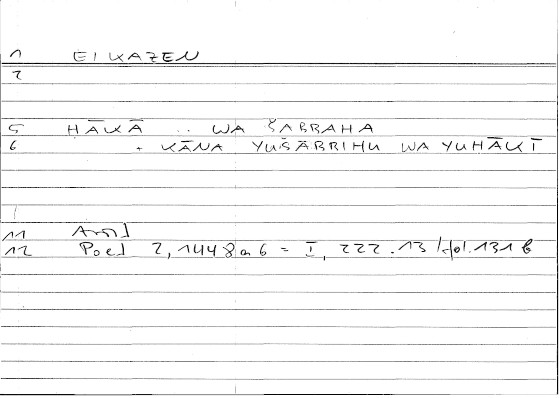 1 EIKAZEN
2
5 ḤĀKĀ .. WA ŠABBAHA
6 + KĀNA YUŠABBIHU WA YUḤĀKĪ
11 Arist
12 Poet 2, 1448a6 = I, 222.13 / fol. 131b